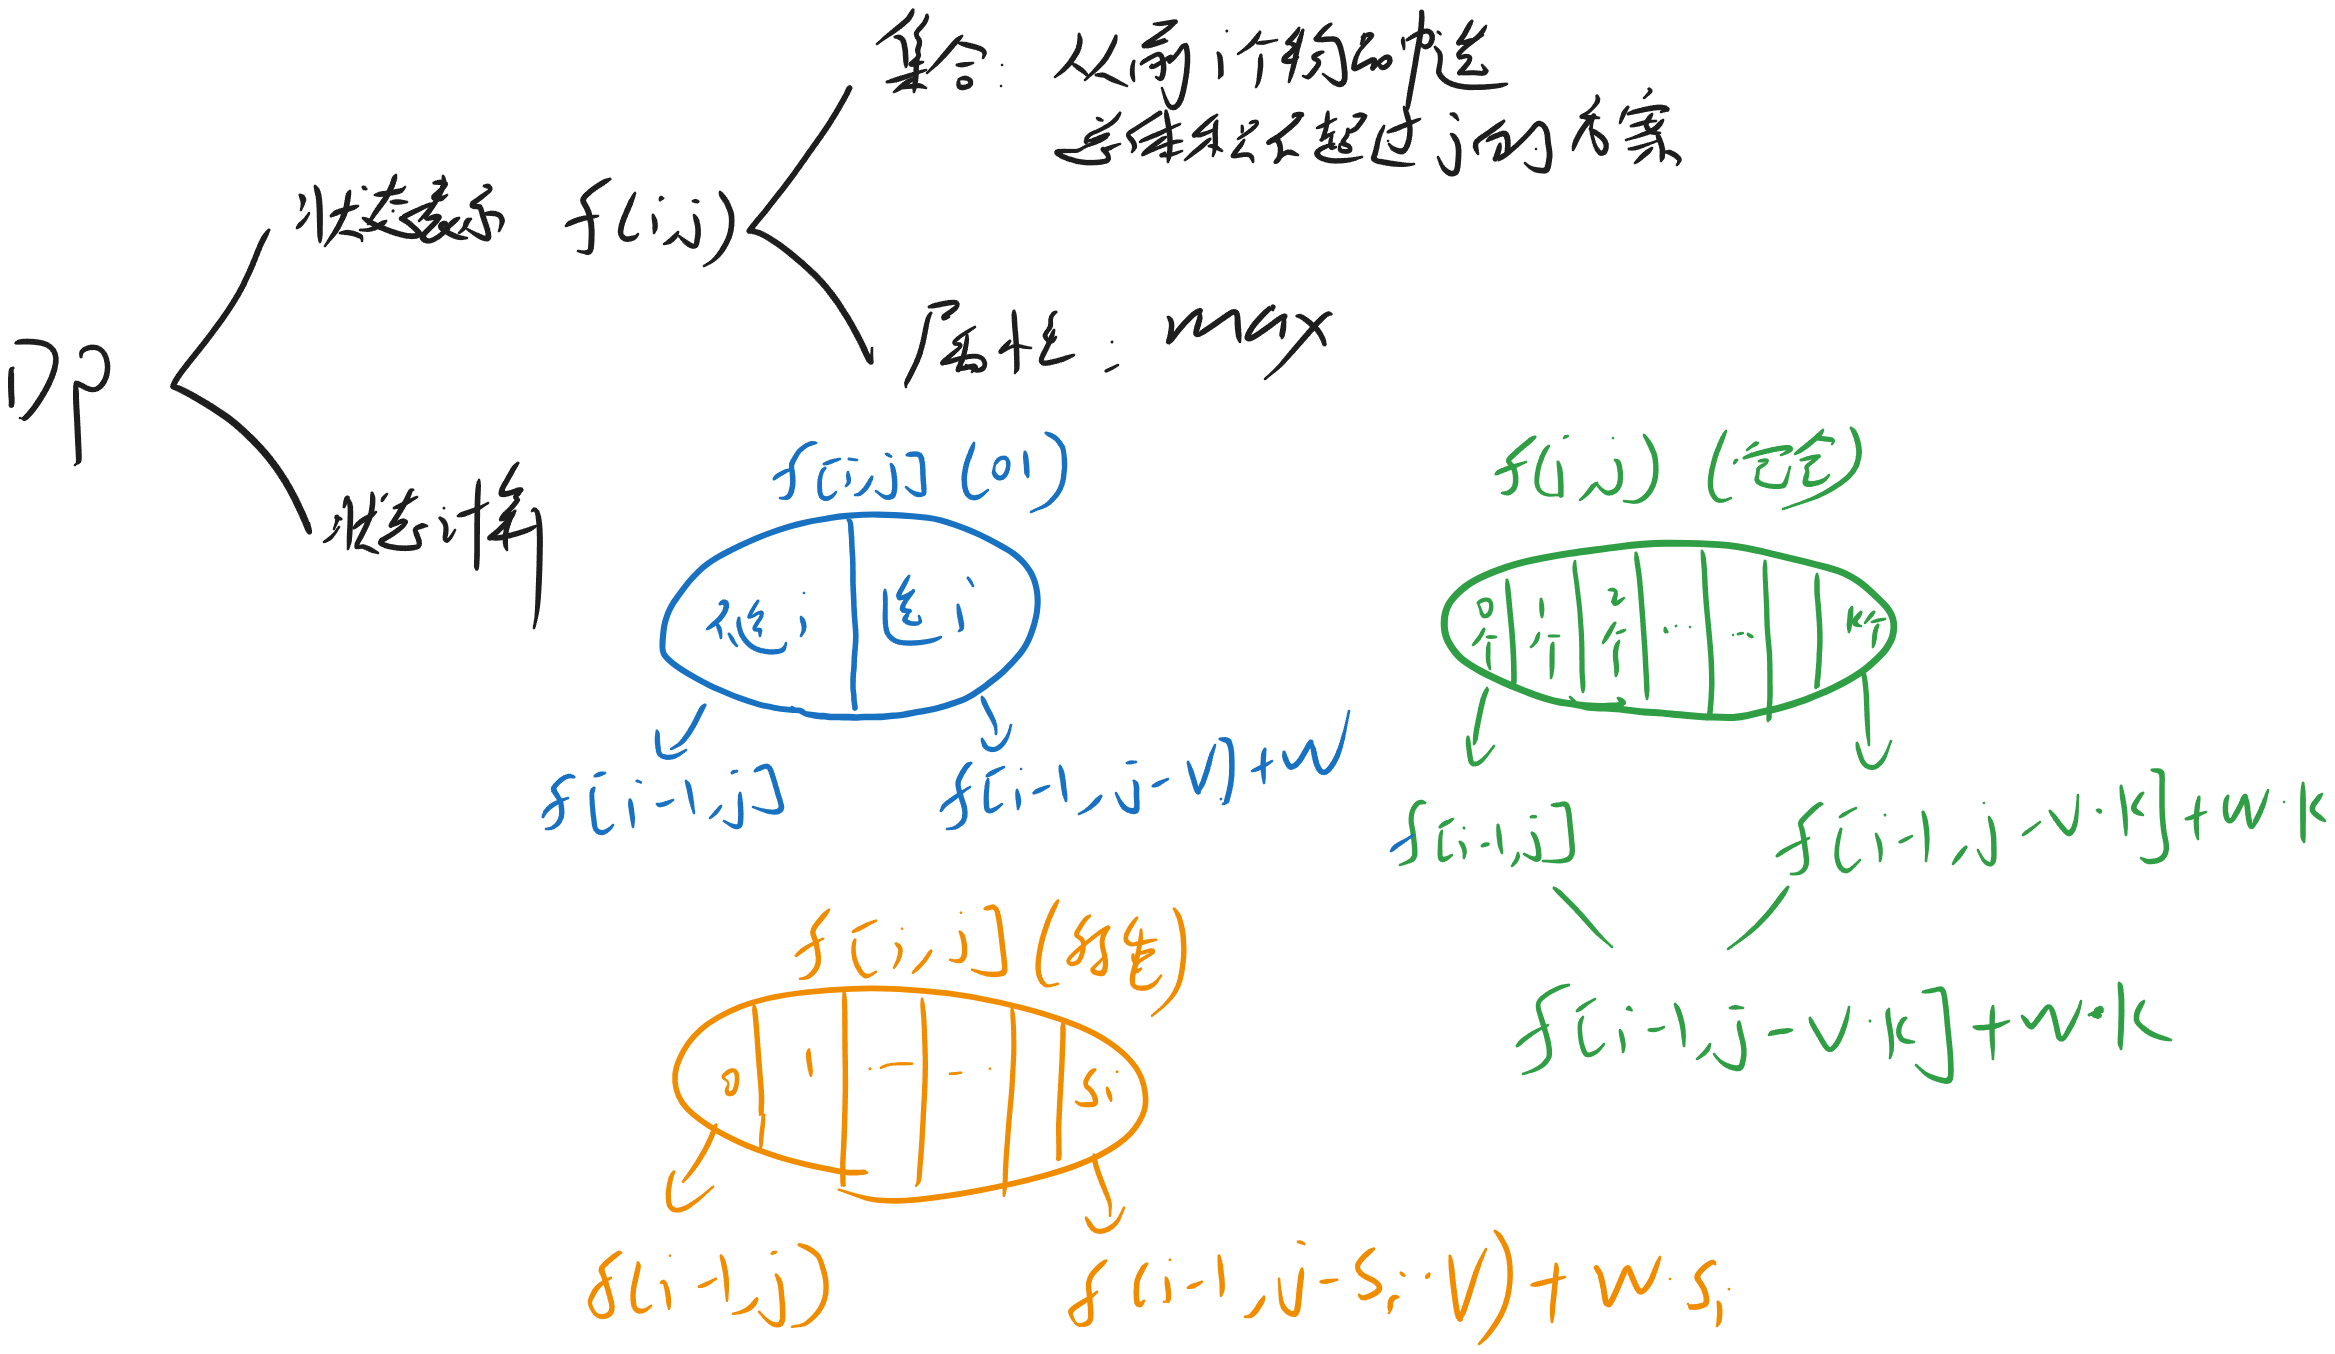 集合: 从前i个物品中选
总体积不超过j的方案
状态表示 f(i,j)
属性: max
DP
状态计算
f[i,j] (01)
不选i 选i
f[i-1,j] f[i-1,j-v]+w
f(i,j) (完全)
0个i 1个i 2个i ... ... k个i
f[i-1,j] f[i-1,j-v·k]+w·k
f[i-1,j-v·k]+w·k
f[i,j] (多重)
0 1 ... ... Si
f(i-1,j) f(i-1,j-Si·v)+w·Si